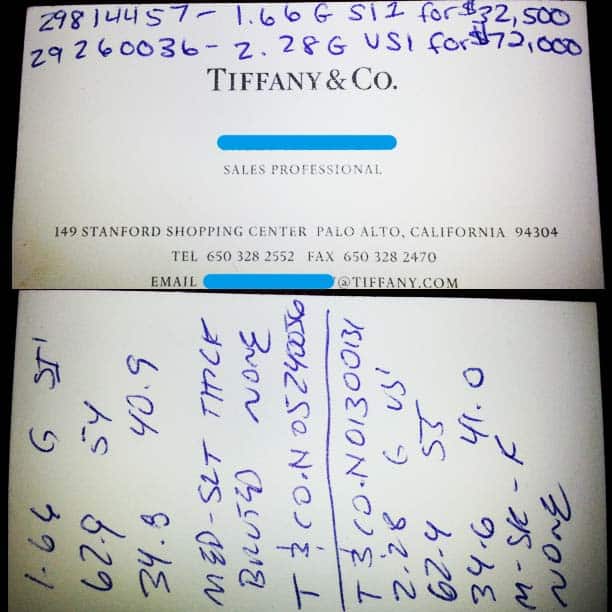 29814457- 1.66 G SI1 for $32,500
29260036- 2.28 G VS1 for $72,000
TIFFANY & CO.
SALES PROFESSIONAL
149 STANFORD SHOPPING CENTER PALO ALTO, CALIFORNIA 94304
TEL 650 328 2552 FAX 650 328 2470
EMAIL @TIFFANY.COM
1.66 G SI1
62.9 54
34.8 40.9
MED-SLT THICK
BRUTED NONE
T & CO. N05240056
T & CO. N01300131
2.28 G VS1
62.4 55
34.6 41.0
NONE